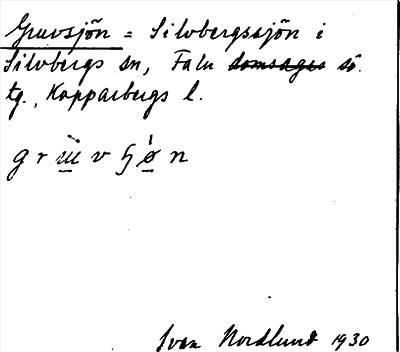 Gruvsjön = Silvbergssjön i
Silvbergs sn, Falu domsagas sö.
tg., Kopparbergs l.
Ivan Nordlund 1930